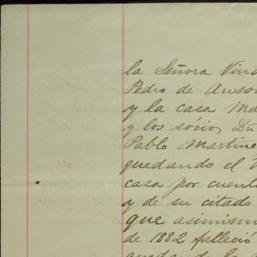 la Señora Viud
Pedro de
y la casa Ma
y los sócio,
Pablo Martine
quedando el
casa por cuent
y de su citado
que asimism
de 1882 falleció
quedando la